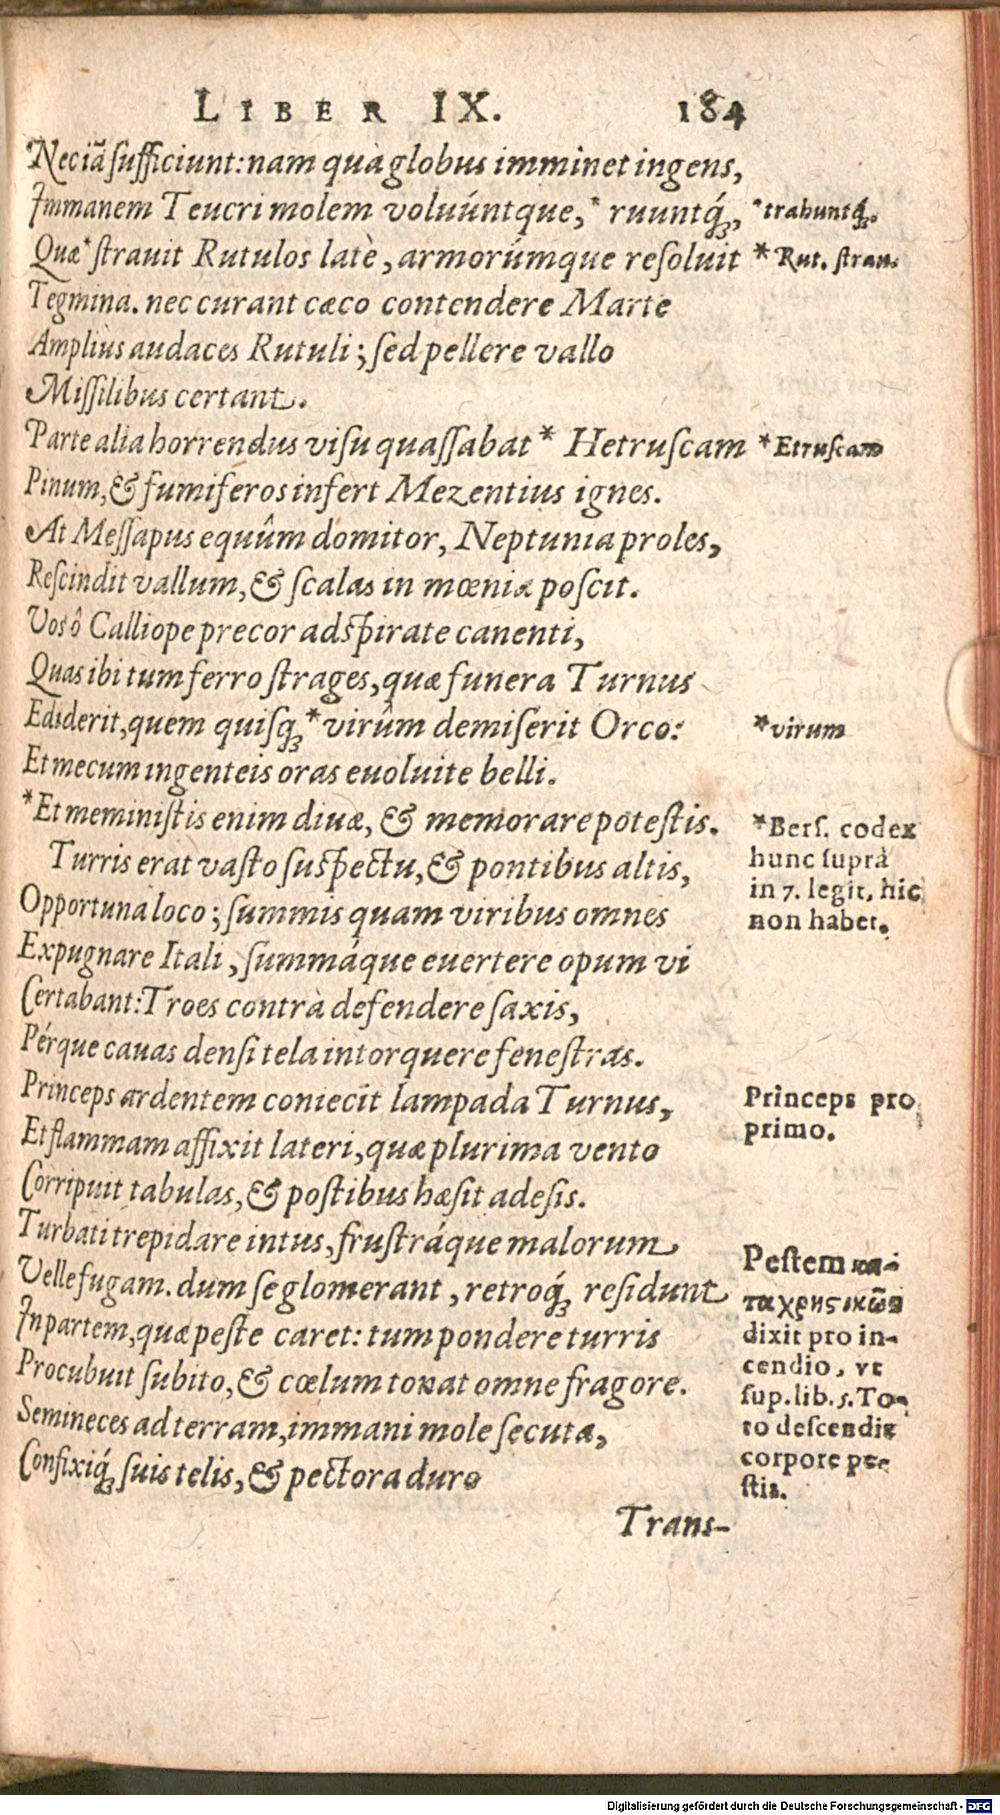 LIBER IX. 184
Nec iã sufficiunt: nam quà globus imminet ingens,
Immanem Teucri molem voluúntque,* ruuntq́;,
*trahuntq́;.
Quæ* strauit Rutulos latè, armorúmque resoluit
*Rut. strau.
Tegmina. nec curant cæco contendere Marte
Ampliùs audaces Rutuli; sed pellere vallo
Missilibus certant.
Parte alia horrendus visu quassabat* Hetruscam
*Etruscam
Pinum, & fumiferos infert Mezentius ignes.
At Messapus equûm domitor, Neptunia proles,
Rescindit vallum, & scalas in mœnia poscit.
Vos ô Calliope precor adspirate canenti,
Quas ibi tum ferro strages, quæ funera Turnus
Ediderit, quem quisq;* virûm demiserit Orco:
*virum
Et mecum ingenteis oras euoluite belli.
*Et meministis enim diuæ, & memorare potestis.
Turris erat vasto suspectu, & pontibus altis,
Opportuna loco; summis quam viribus omnes
Expugnare Itali, summáque euertere opum vi
Certabant: Troes contrà defendere saxis,
Pérque cauas densi tela intorquere fenestras.
Princeps ardentem coniecit lampada Turnus,
Et flammam affixit lateri, quæ plurima vento
Corripuit tabulas, & postibus hæsit adesis.
Turbati trepidare intus, frustráque malorum
Velle fugam. dum se glomerant, retroq́; residunt
In partem, quæ peste caret: tum pondere turris
Procubuit subito, & cœlum tonat omne fragore.
Semineces ad terram, immani mole secuta,
Confixiq́; suis telis, & pectora duro
*Bers. codex
hunc suprà
in 7. legit, hic
non habet.
Princeps pro
primo.
Pestem κα-
ταχρηστικῶς
dixit pro in-
cendio, vt
sup. lib. 5. To-
to descendit
corpore pe-
stis.
Trans-
Digitalisierung gefördert durch die Deutsche Forschungsgemeinschaft - DFG